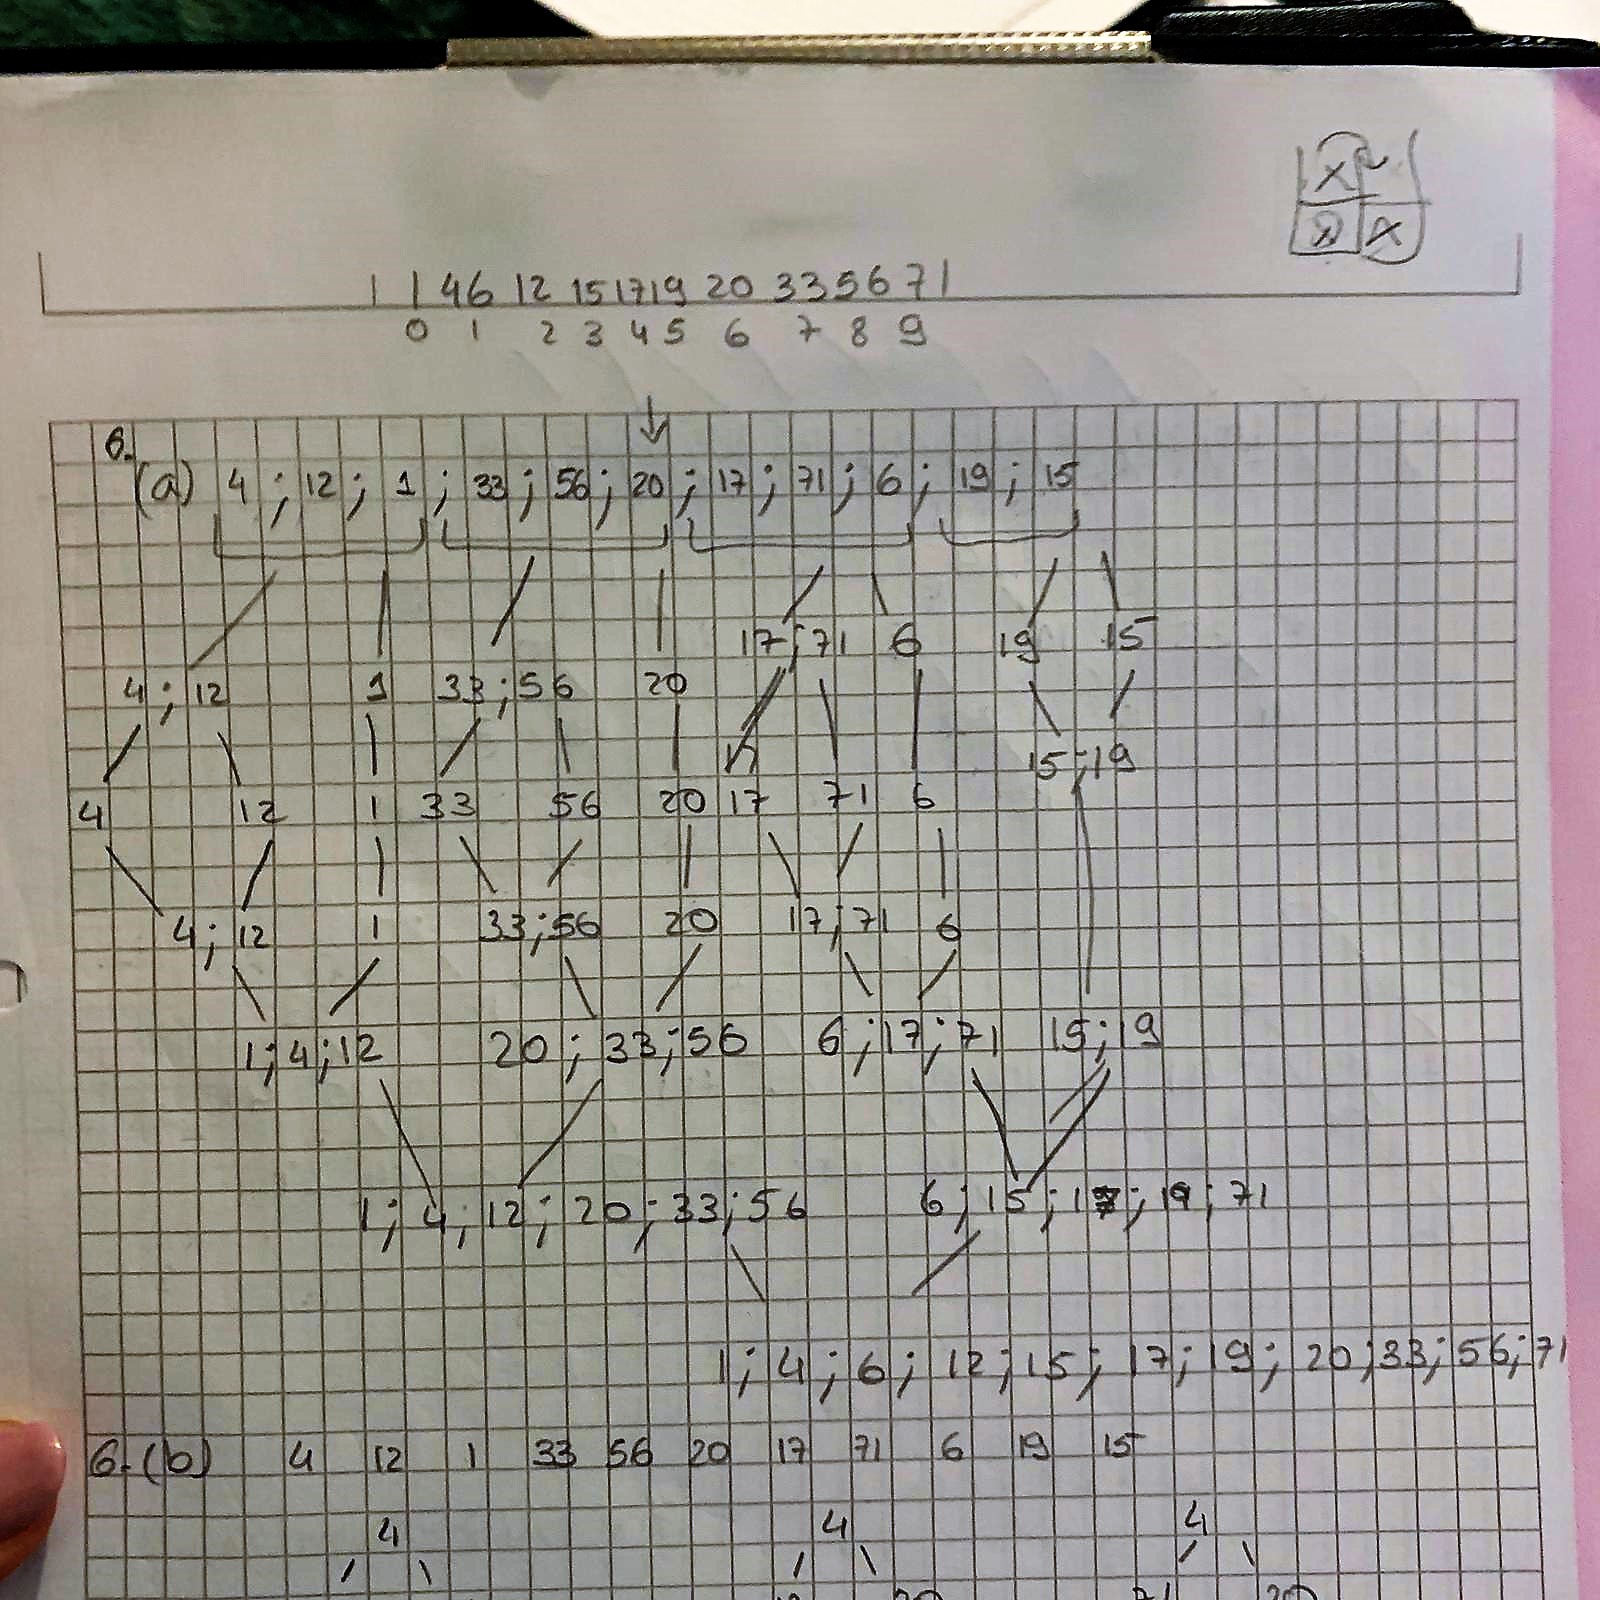 1 46 12 15 17 19 20 33 56 71
0 1 2 3 4 5 6 7 8 9
6.
(a) 4 ; 12 ; 1 ; 33 ; 56 ; 20 ; 17 ; 71 ; 6 ; 19 ; 15
17 ; 71 6 19 15
4 ; 12 1 33 ; 56 20
15 ; 19
4 12 1 33 56 20 17 71 6
4 ; 12 1 33 ; 56 20 17 ; 71 6
1 ; 4 ; 12 20 ; 33 ; 56 6 ; 17 ; 71 15 ; 19
1 ; 4 ; 12 ; 20 ; 33 ; 56 6 ; 15 ; 17 ; 19 ; 71
1 ; 4 ; 6 ; 12 ; 15 ; 17 ; 19 ; 20 ; 33 ; 56 ; 71
6. (b) 4 12 1 33 56 20 17 71 6 19 15
4 4 4